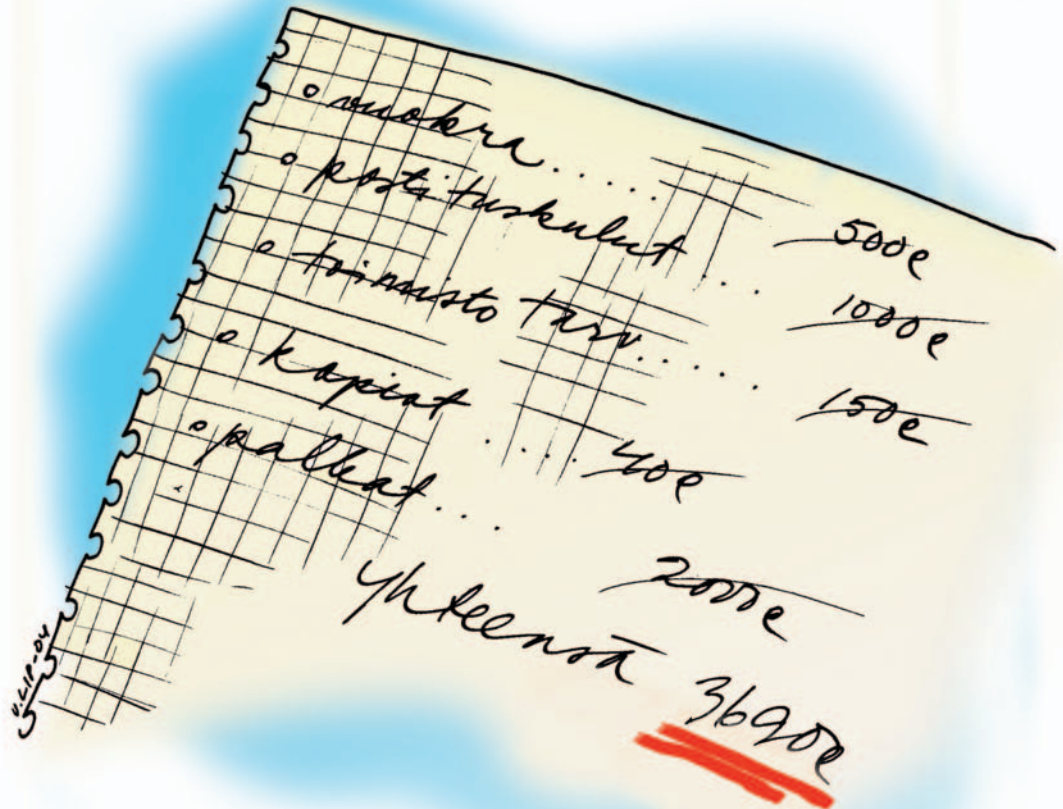 vuokra..... 500e
postituskulut.... 1000e
toimisto tarv...... 150e
kopiot ..... 40e
palkat... 2000e
yhteensä 3690e
U.LIP-04